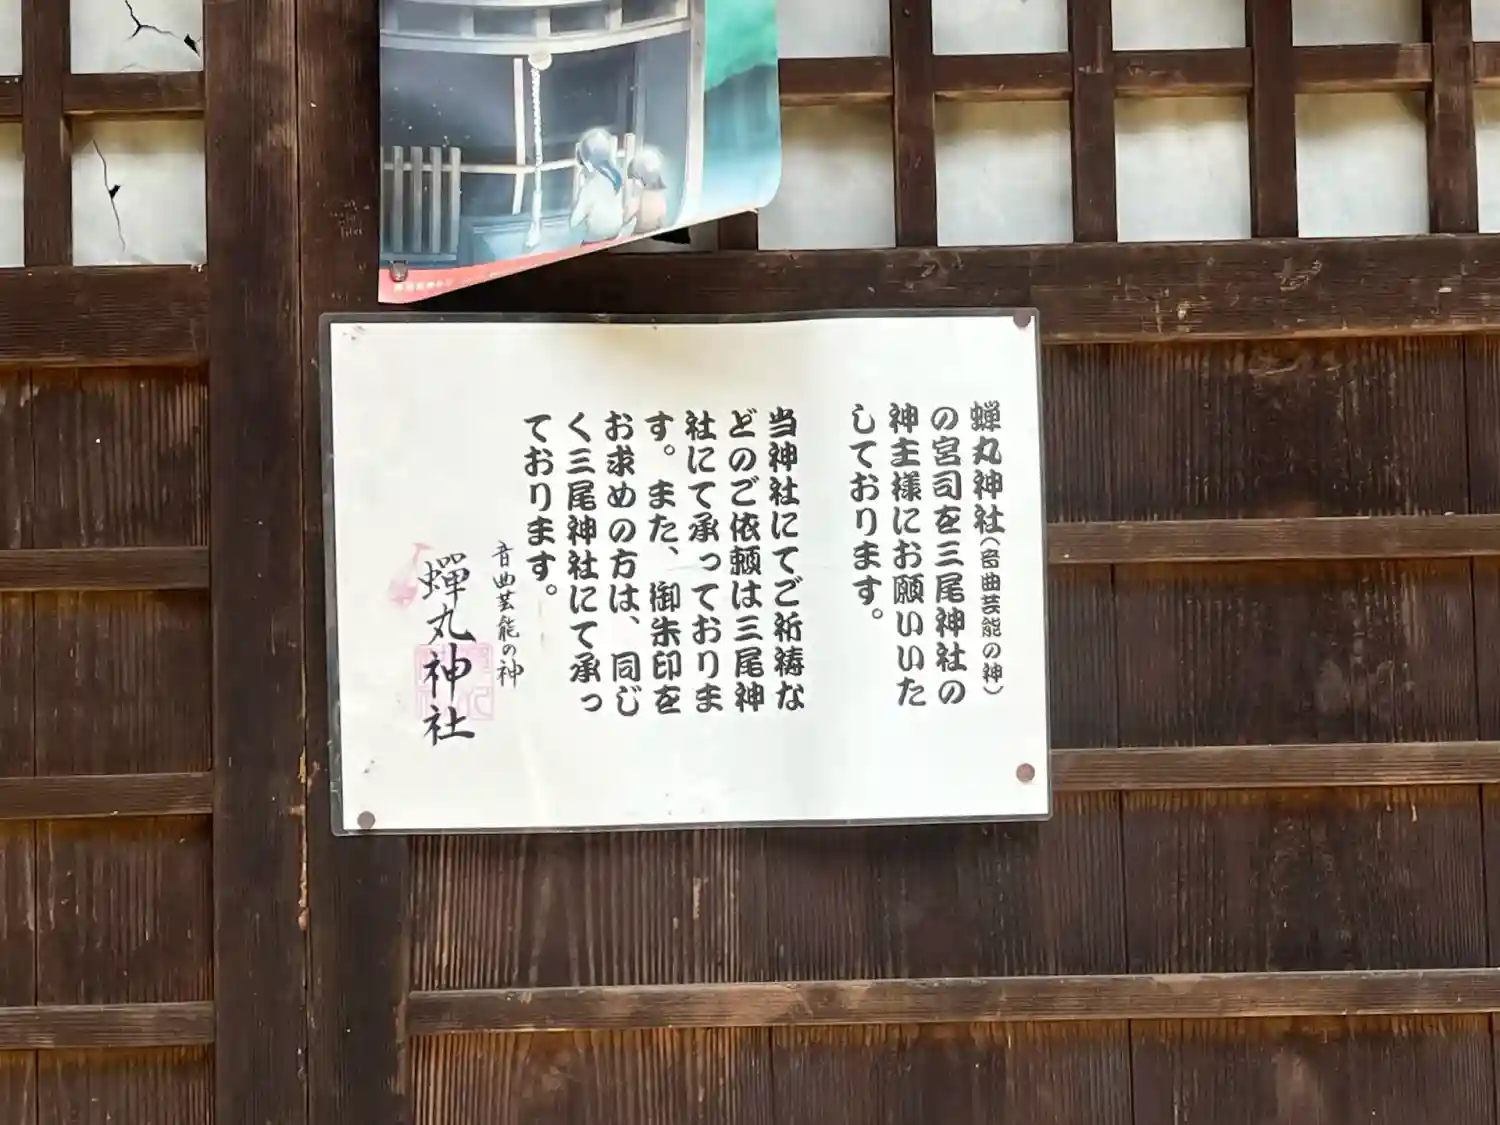 蝉丸神社(音曲芸能の神)
の宮司を三尾神社の
神主様にお願いいた
しております。
当神社にてご祈祷な
どのご依頼は三尾神
社にて承っておりま
す。また、御朱印を
お求めの方は、同じ
く三尾神社にて承っ
ております。
音曲芸能の神
蟬丸神社